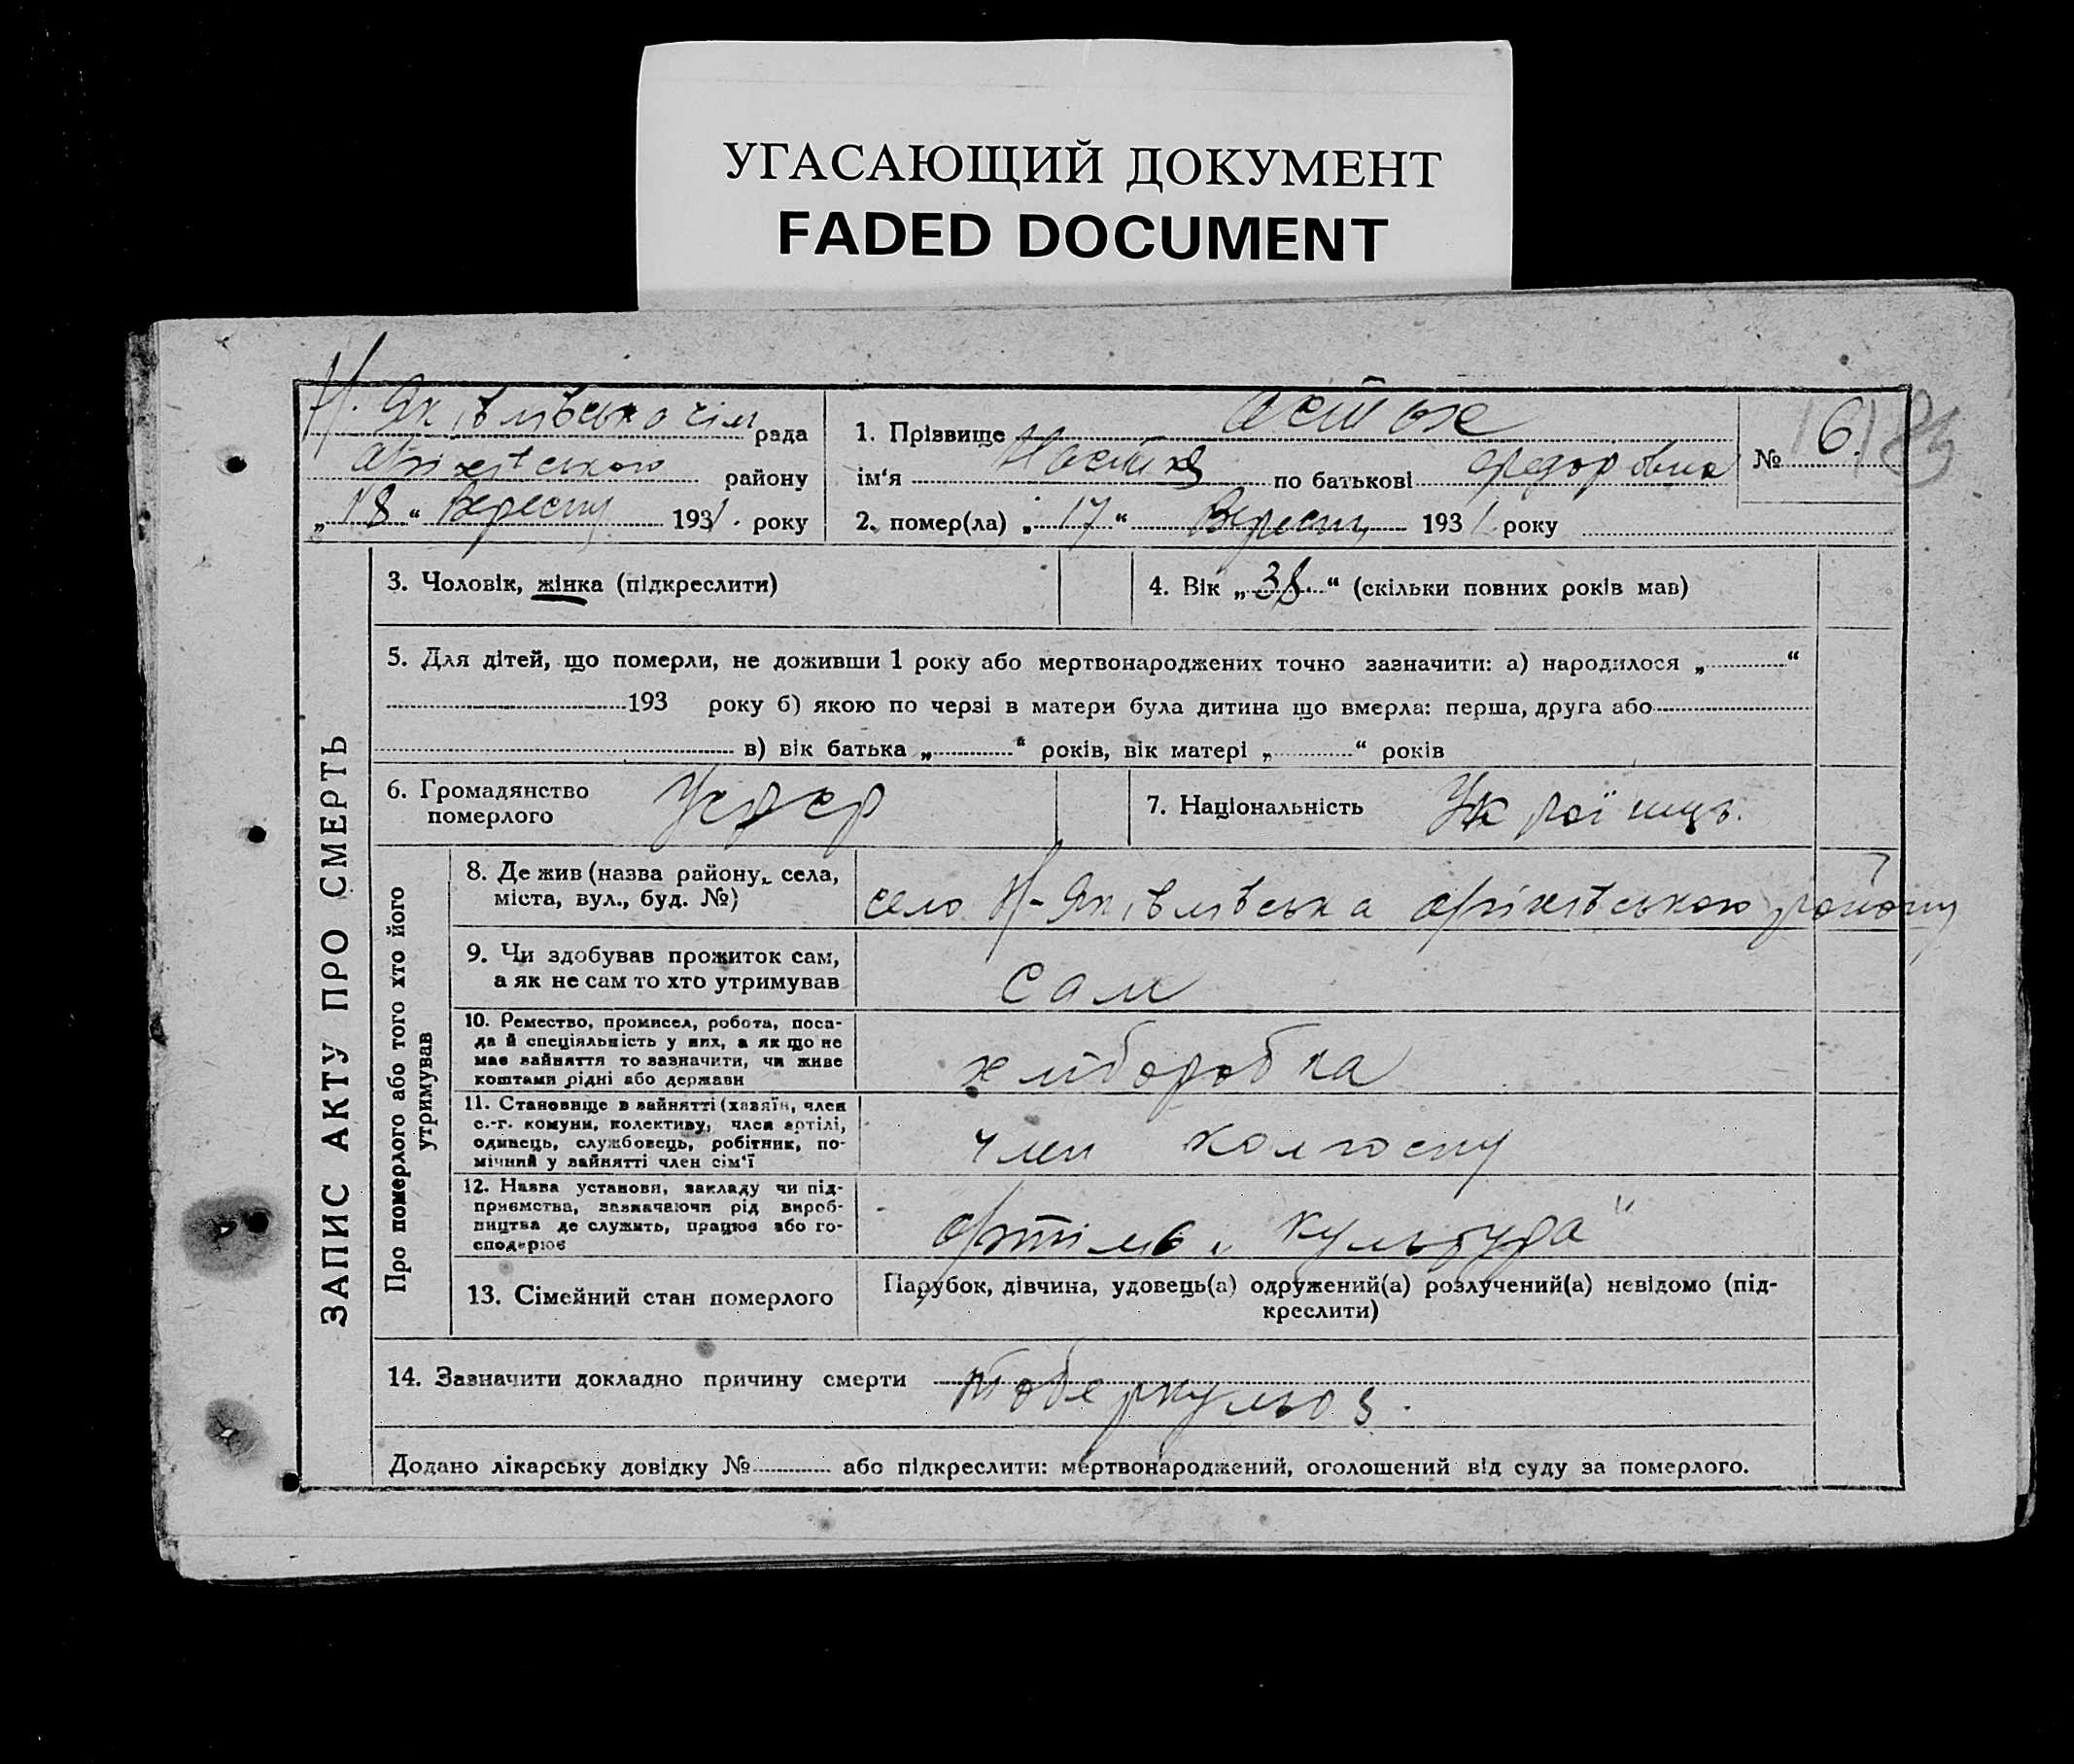 УГАСАЮЩИЙ ДОКУМЕНТ
FADED DOCUMENT
ЗАПИС АКТУ ПРО СМЕРТЬ
Н. Яківлівська сіл рада
оріхівського району
„18“ Вересня 1931. року
1. Прізвище
ім‘я Настя по батькові Федоровна
№ 6.
2. помер(ла) „17“ Вересня 1931 року
3. Чоловік, жінка (підкреслити)
4. Вік „38“ (скільки повних років мав)
5. Для дітей, що померли, не доживши 1 року або мертвонароджених точно зазначити: а) народилося „ “
193 року б) якою по черзі в матери була дитина що вмерла: перша, друга або
в) вік батька „ “ років, вік матері „ “ років
6. Громадянство
померлого
Усрср
7. Національність Україньць.
Про померлого або того хто його
утримував
8. Де жив (назва району, села,
міста, вул., буд. №)
село Н-Яківлівська оріхівського району
9. Чи здобував прожиток сам,
а як не сам то хто утримував
сам
10. Ремество, промисел, робота, поса-
да й спеціяльність у них, а як що не
має зайняття то зазначити, чи живе
коштами рідні або держави
хліборобка
11. Становище в зайнятті (хазяїн, член
с.-г. комуни, колективу, член артілі,
одинець, службовець, робітник, по-
мічний у зайнятті член сім‘ї
член колгоспу
12. Назва установи, закладу чи під-
приємства, зазначаючи рід вироб-
ництва де служить, працює або го-
сподарює
Артіль „Культура“
13. Сімейний стан померлого
Парубок, дівчина, удовець(а) одружений(а) розлучений(а) невідомо (під-
креслити)
14. Зазначити докладно причину смерти тоберкульоз.
Додано лікарську довідку № або підкреслити: мертвонароджений, оголошений від суду за померлого.